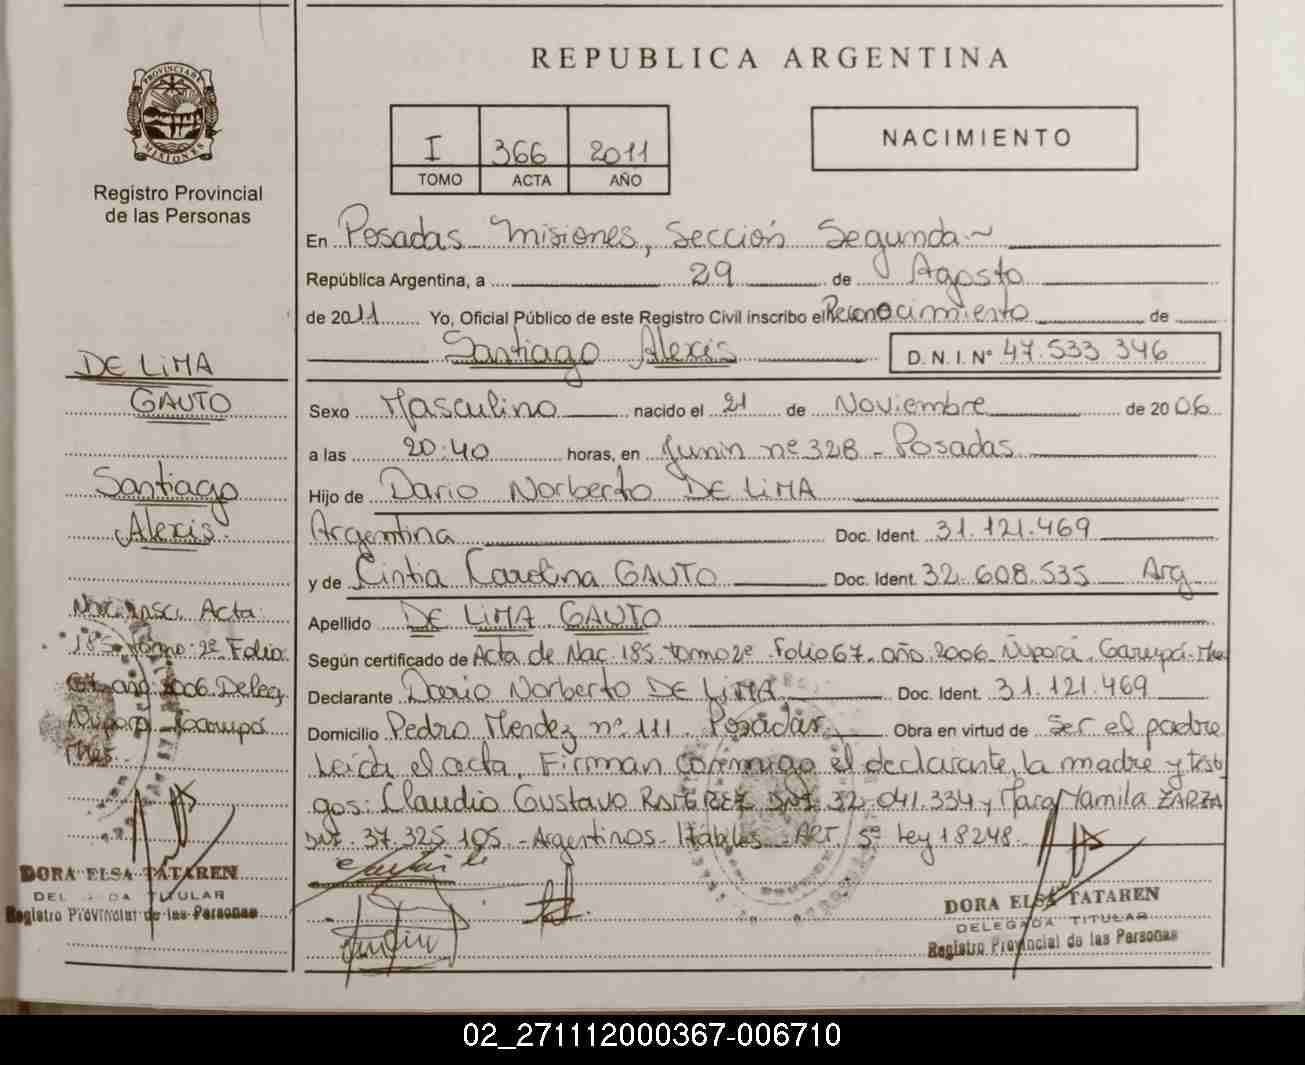 REPUBLICA ARGENTINA
PROVINCIA DE MISIONES
Registro Provincial
de las Personas
I 366 2011
TOMO ACTA AÑO
NACIMIENTO
En Posadas Misiones, Sección Segunda
República Argentina, a 29 de Agosto
de 2011 Yo, Oficial Público de este Registro Civil inscribo el Reconocimiento de
Santiago Alexis D.N.I.Nº 47.533.346
Sexo Masculino nacido el 21 de Noviembre de 2006
a las 20:40 horas, en Junin nº 328 - Posadas
Hijo de Dario Norberto DE LiMA
Argentina Doc. Ident. 31.121.469
y de Cintia Carolina GAUTO Doc. Ident. 32.608.535 Arg
Apellido DE LiMA GAUTO
Según certificado de Acta de Nac. 185 tomo 2º Folio 67 año 2006 Ñuporá. Garupá.
Declarante Dario Norberto DE LiMA Doc. Ident. 31.121.469
Domicilio Pedro Mendez nº 111. Posadas Obra en virtud de Ser el padre
Leída el acta, Firman conmigo el declarante, la madre y testi
gos: Claudio Gustavo RAMIREZ DNI. 32.041.334 y Mamila ZARZA
DNI. 37.325.105 - Argentinos - Habiles - ART. 5º Ley 18248.
DE LiMA
GAUTO
Santiago
Alexis
Acta
185 tomo 2º Folio
67 año 2006 Deleg.
Garupá
DORA ELSA TATAREN
DELEGADA TITULAR
Registro Provincial de las Personas
DORA ELSA TATAREN
DELEGADA TITULAR
Registro Provincial de las Personas
02_271112000367-006710